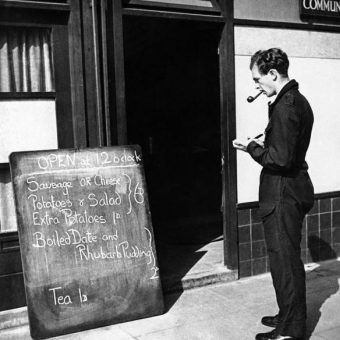 COMMUN
OPEN at 12 o'clock
Sausage or Cheese
Potatoes & Salad } 6
Extra Potatoes 1D
Boiled Date and
Rhubarb Pudding
Tea